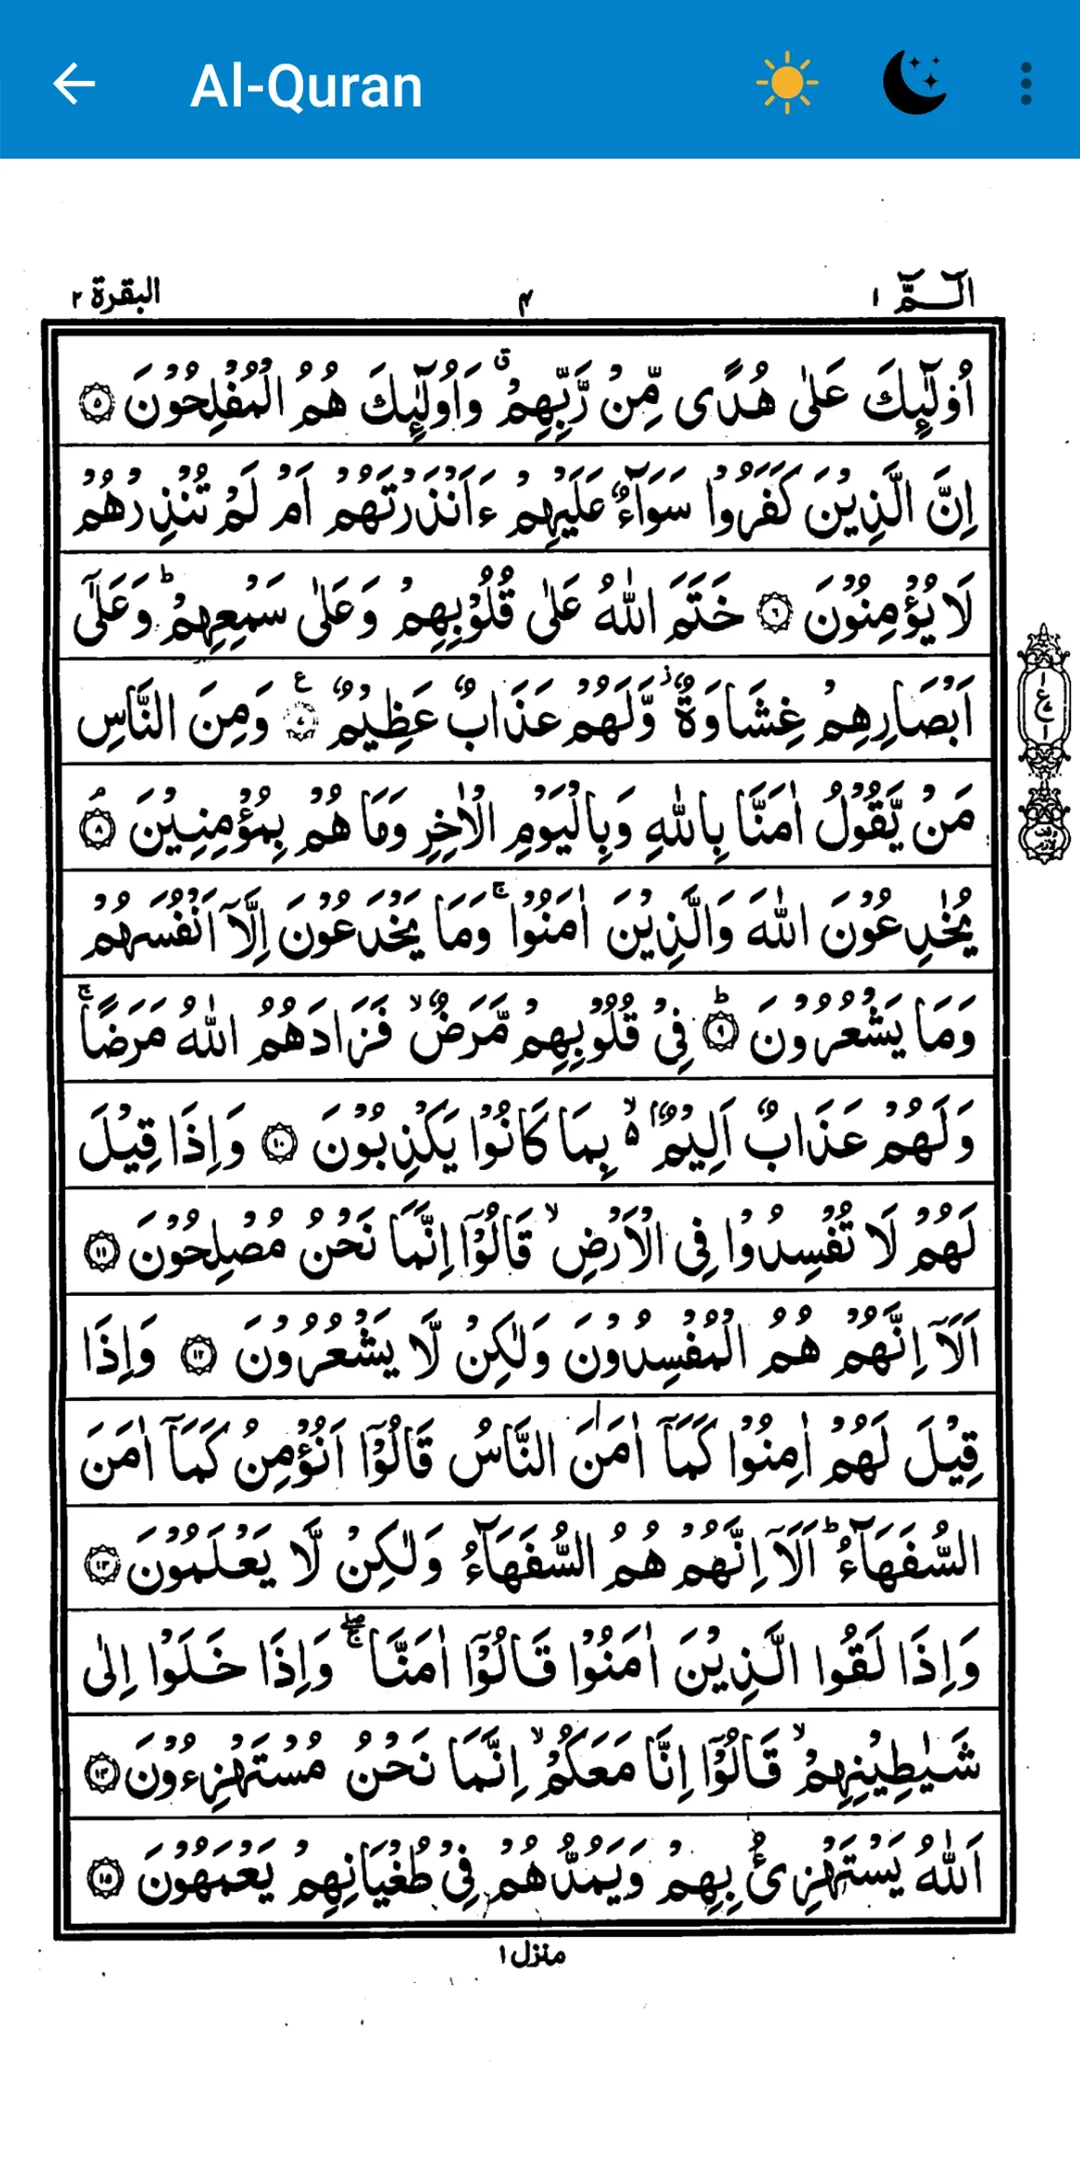 Al-Quran
الٓـمّٓ ١
۴
البقرة ٢
اُولٰٓئِكَ عَلٰى هُدًى مِّنْ رَّبِّهِمْ ۗ وَاُولٰٓئِكَ هُمُ الْمُفْلِحُوْنَ ۝٥
اِنَّ الَّذِيْنَ كَفَرُوْا سَوَآءٌ عَلَيْهِمْ ءَاَنْذَرْتَهُمْ اَمْ لَمْ تُنْذِرْهُمْ
لَا يُؤْمِنُوْنَ ۝٦ خَتَمَ اللّٰهُ عَلٰى قُلُوْبِهِمْ وَعَلٰى سَمْعِهِمْ ؕ وَعَلٰٓى
اَبْصَارِهِمْ غِشَاوَةٌ ز وَّلَهُمْ عَذَابٌ عَظِيْمٌ ۝٧ ع وَمِنَ النَّاسِ
مَنْ يَّقُوْلُ اٰمَنَّا بِاللّٰهِ وَبِالْيَوْمِ الْاٰخِرِ وَمَا هُمْ بِمُؤْمِنِيْنَ ۝٨ۘ
يُخٰدِعُوْنَ اللّٰهَ وَالَّذِيْنَ اٰمَنُوْا ۚ وَمَا يَخْدَعُوْنَ اِلَّآ اَنْفُسَهُمْ
وَمَا يَشْعُرُوْنَ ۝٩ؕ فِيْ قُلُوْبِهِمْ مَّرَضٌ ۙ فَزَادَهُمُ اللّٰهُ مَرَضًا ۚ
وَلَهُمْ عَذَابٌ اَلِيْمٌ ۙ۵ بِمَا كَانُوْا يَكْذِبُوْنَ ۝١٠ وَاِذَا قِيْلَ
لَهُمْ لَا تُفْسِدُوْا فِى الْاَرْضِ ۙ قَالُوْٓا اِنَّمَا نَحْنُ مُصْلِحُوْنَ ۝١١
اَلَآ اِنَّهُمْ هُمُ الْمُفْسِدُوْنَ وَلٰكِنْ لَّا يَشْعُرُوْنَ ۝١٢ وَاِذَا
قِيْلَ لَهُمْ اٰمِنُوْا كَمَآ اٰمَنَ النَّاسُ قَالُوْٓا اَنُؤْمِنُ كَمَآ اٰمَنَ
السُّفَهَآءُ ؕ اَلَآ اِنَّهُمْ هُمُ السُّفَهَآءُ وَلٰكِنْ لَّا يَعْلَمُوْنَ ۝١٣
وَاِذَا لَقُوا الَّذِيْنَ اٰمَنُوْا قَالُوْٓا اٰمَنَّا ۖۚ وَاِذَا خَلَوْا اِلٰى
شَيٰطِيْنِهِمْ ۙ قَالُوْٓا اِنَّا مَعَكُمْ ۙ اِنَّمَا نَحْنُ مُسْتَهْزِءُوْنَ ۝١٤
اَللّٰهُ يَسْتَهْزِئُ بِهِمْ وَيَمُدُّهُمْ فِيْ طُغْيَانِهِمْ يَعْمَهُوْنَ ۝١٥
منزل ١